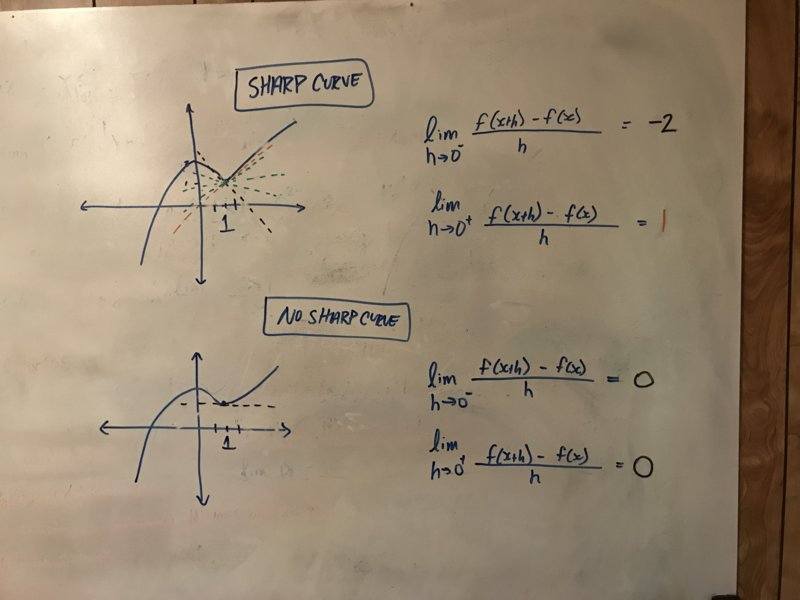 SHARP CURVE
lim h→0⁻ f(x+h) - f(x) / h = -2
1
lim h→0⁺ f(x+h) - f(x) / h = 1
NO SHARP CURVE
lim h→0⁻ f(x+h) - f(x) / h = 0
1
lim h→0⁺ f(x+h) - f(x) / h = 0